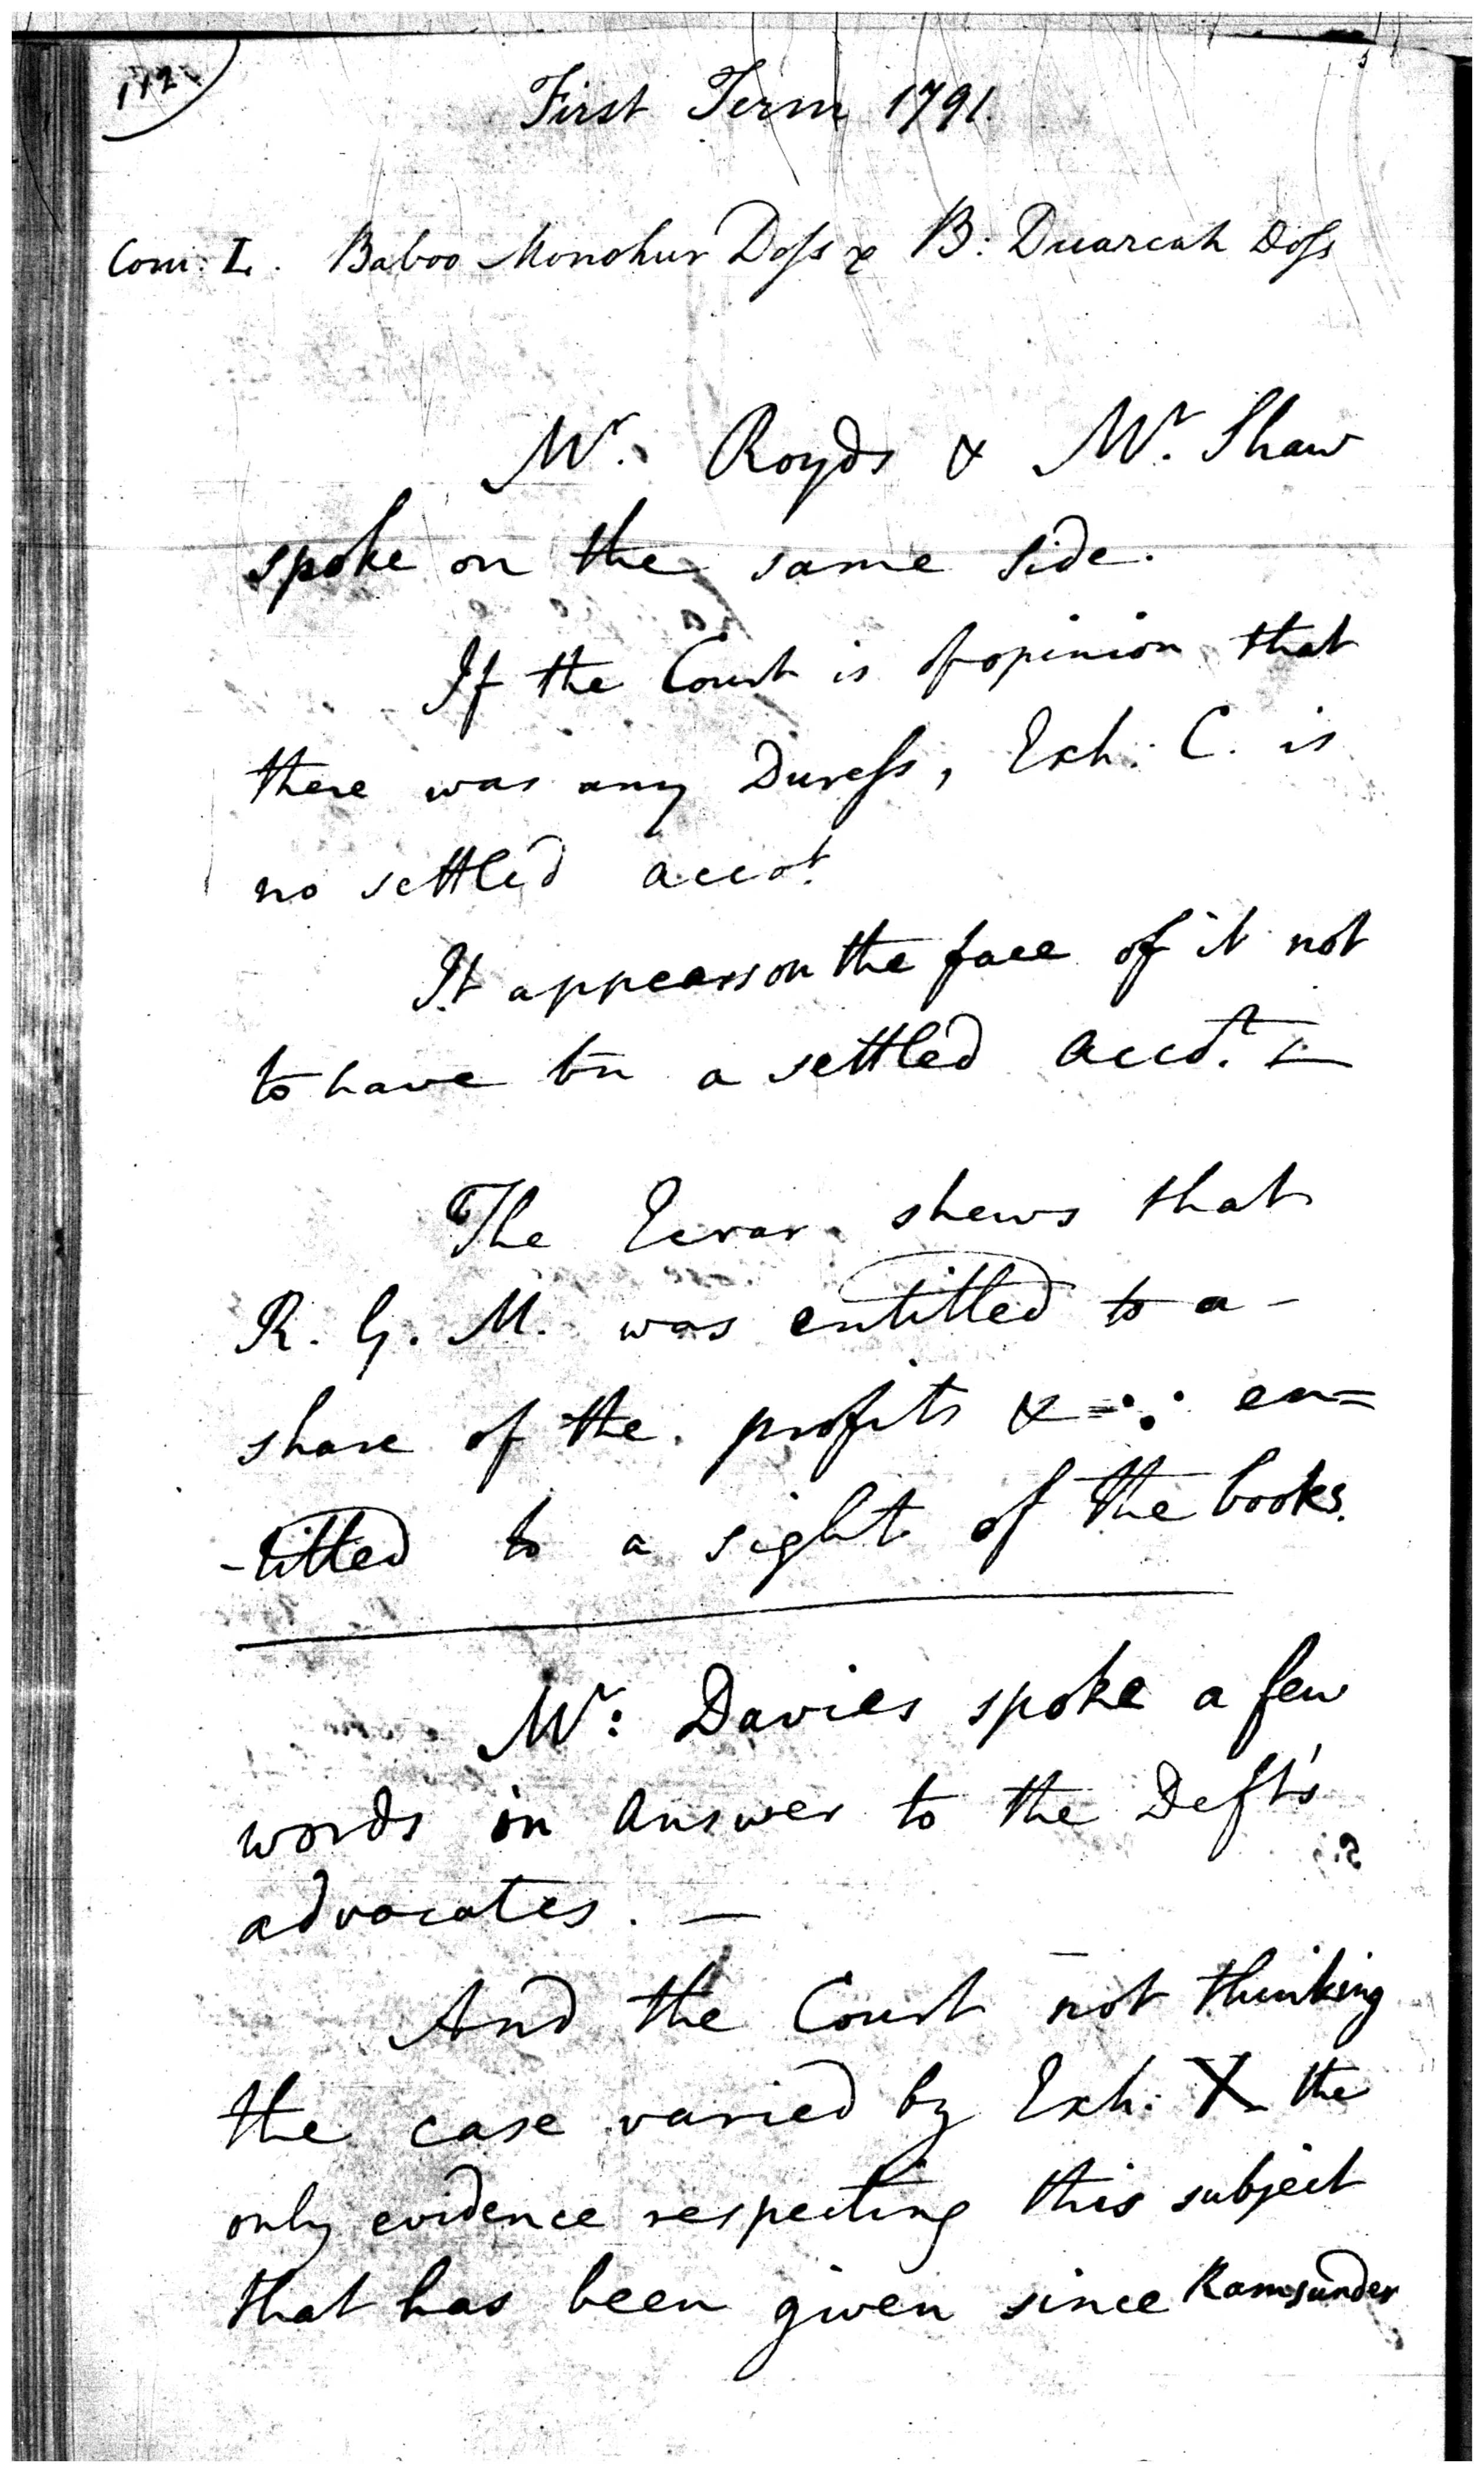 First Term 1791.
Com: L. Baboo Monohur Doſs & B: Duarcah Doſs
Mr. Royds & Mr. Shaw
spoke on the same side.
If the Court is of opinion that
there was any Dureſs, Exh: C. is
no settled accot.
It appears on the face of it not
to have bn a settled accot. —
The Ecrar shews that
R. G. M. was entitled to a -
share of the profits & ∴ en=
-titled to a sight of the books.
Mr: Davies spoke a few
words in answer to the Deft's
advocates. —
And the Court not thinking
the case varied by Exh: X the
only evidence respecting this subject
that has been given since Ramsunder